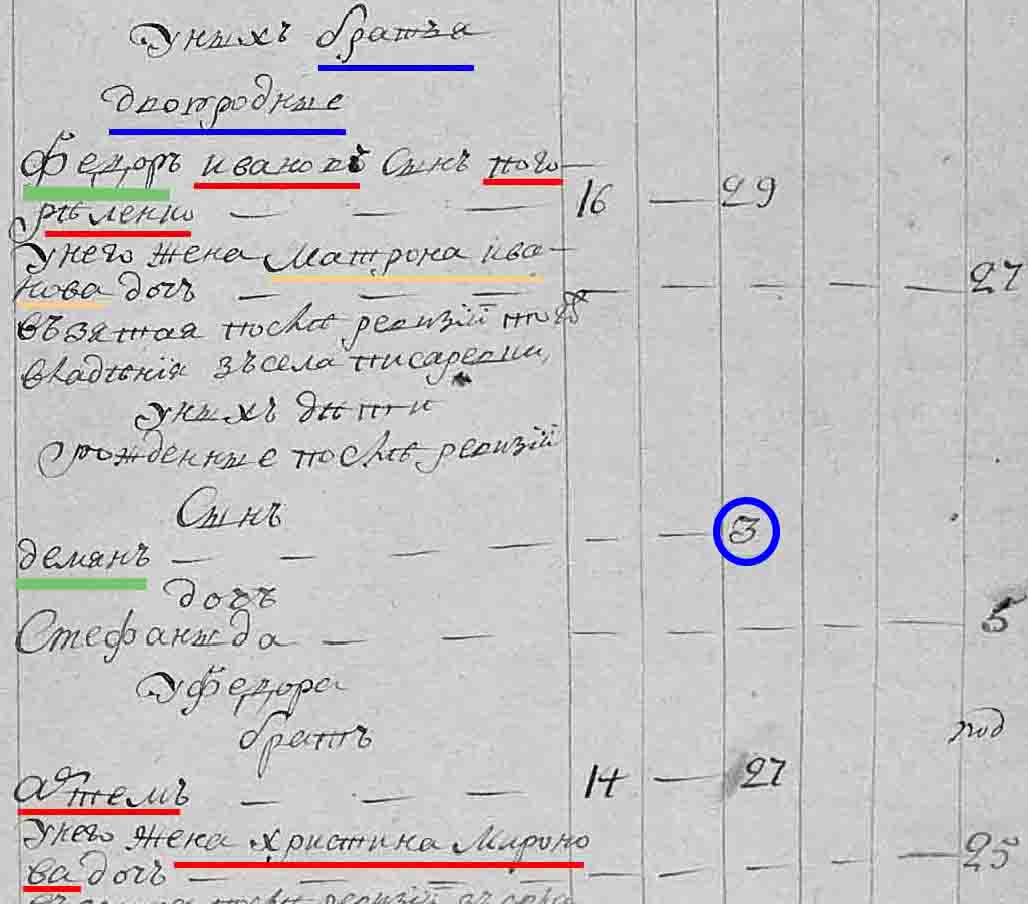 у них братья
двоюродные
Федоръ ивановъ сынъ пого
рѣленко — — — 16 — 29
у него жена Матрона ива
нова дочь — — — — — — — — 27
въ зятая после ревизіи того
владѣнія зъ села писаревки
у них дѣти
рожденные после ревизіи
Сынъ
демянъ — — — — — — 3
дочь
Стефанида — — — — — — — — 5
у федора
братъ
год
артемъ — — — 14 — 27
у него жена христина Мироно
ва дочь — — — — — — — — 25